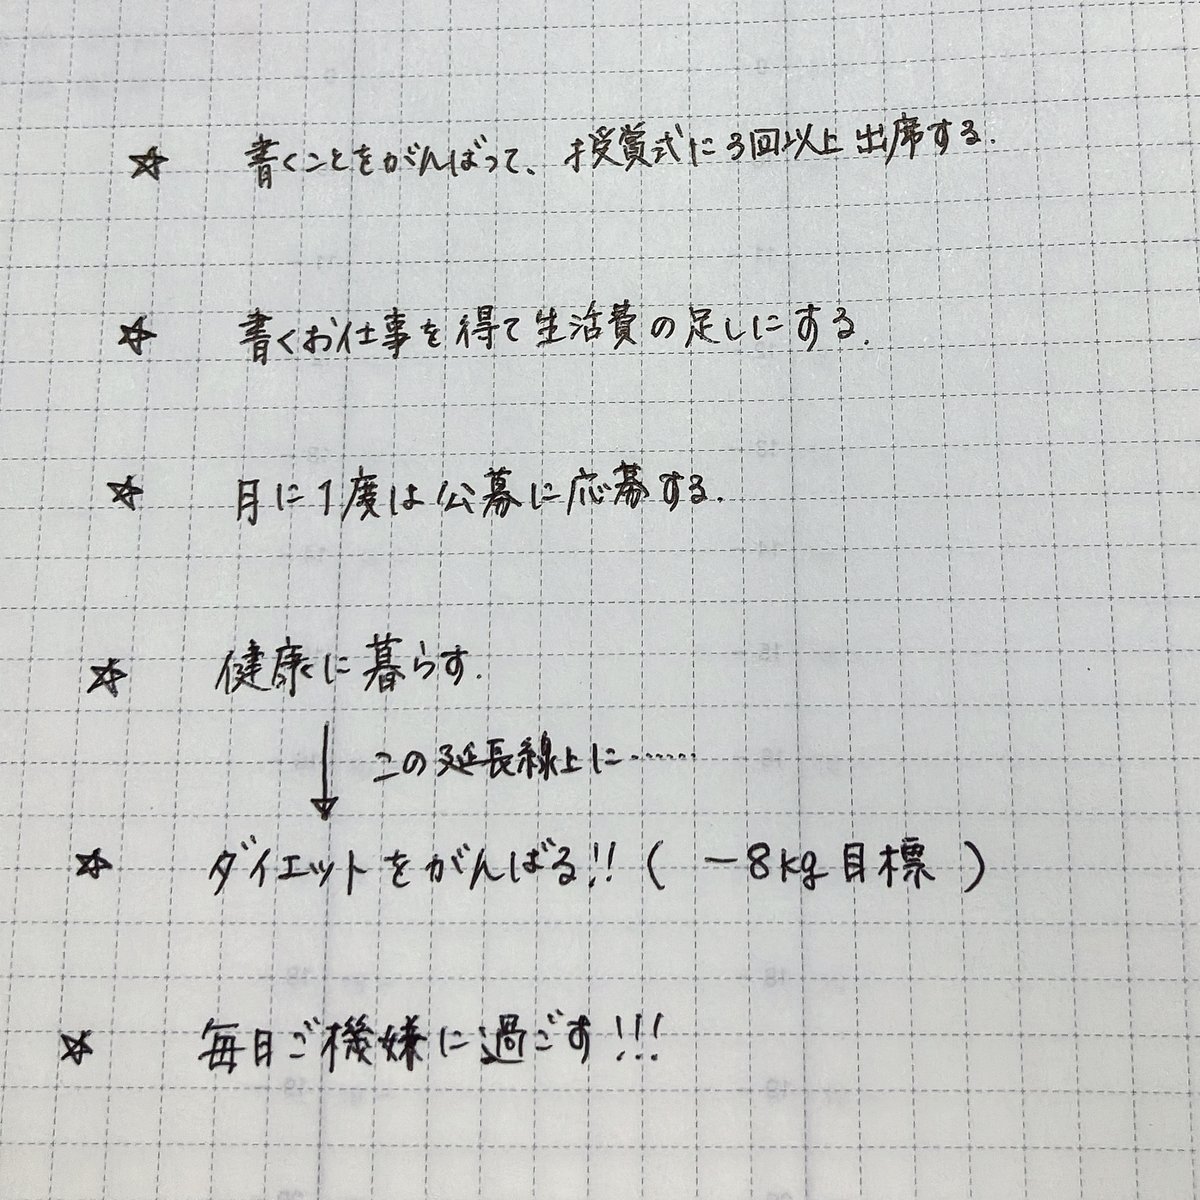 ☆ 書くことをがんばって、授賞式に3回以上出席する.
☆ 書くお仕事を得て生活費の足しにする.
☆ 月に1度は公募に応募する.
☆ 健康に暮らす.
↓ この延長線上に……
☆ ダイエットをがんばる!! ( −8kg目標 )
☆ 毎日ご機嫌に過ごす!!!